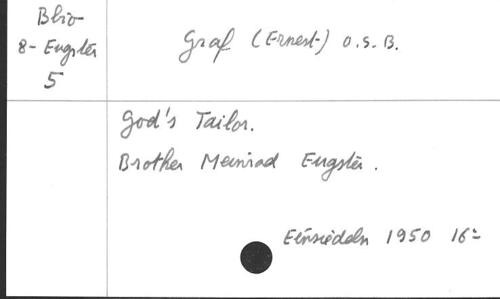 Blio-
8-Eugster
5
Graf (Ernest) O.S.B.
God's Tailor.
Brother Meinrad Eugster.
Einsiedeln 1950 16°